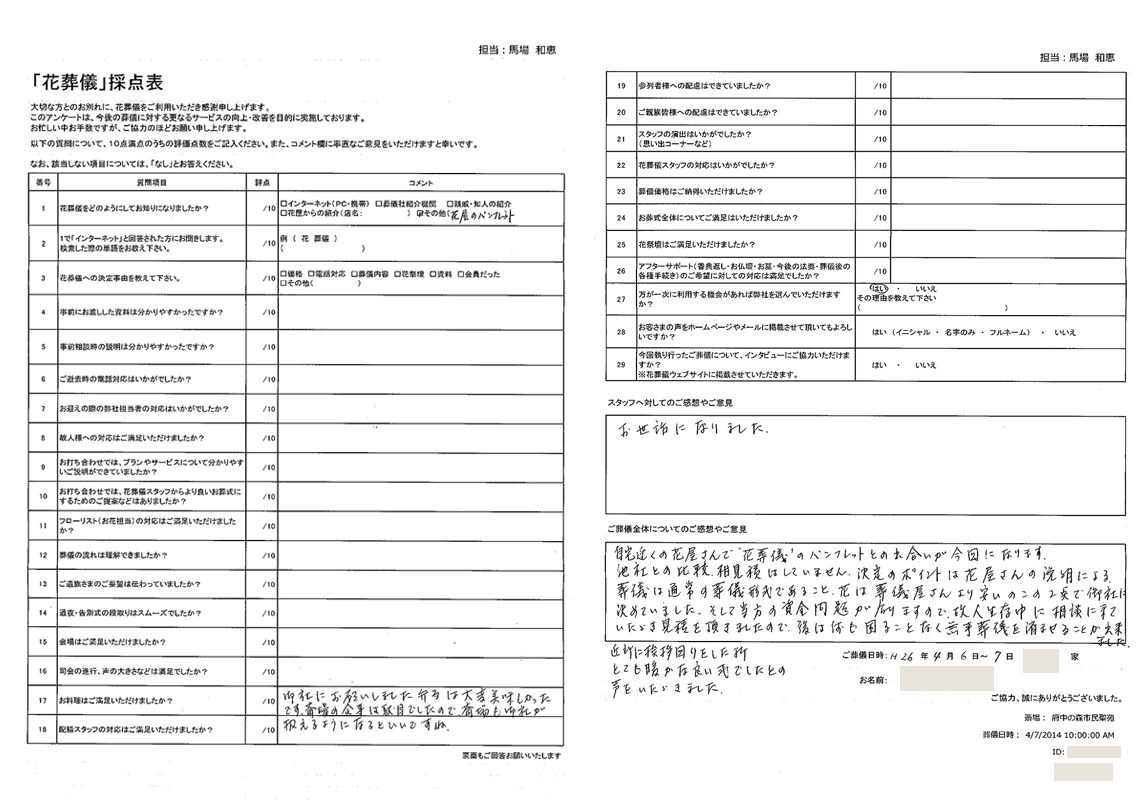 担当：馬場 和恵
「花葬儀」採点表
大切な方とのお別れに、花葬儀をご利用いただき感謝申し上げます。
このアンケートは、今後の葬儀に対する更なるサービスの向上・改善を目的に実施しております。
お忙しい中お手数ですが、ご協力のほどお願い申し上げます。
以下の質問について、10点満点のうちの評価点数をご記入ください。また、コメント欄に率直なご意見をいただけますと幸いです。
なお、該当しない項目については、「なし」とお答えください。
番号 質問項目 評点 コメント
1 花葬儀をどのようにしてお知りになりましたか？ /10 □インターネット（PC・携帯） □葬儀社紹介機関 □親戚・知人の紹介
□花屋からの紹介（店名： ） ☑その他（花屋のパンフレット
2 1で「インターネット」と回答された方にお聞きします。
検索した際の単語をお教え下さい。 /10 例（ 花 葬儀 ）
（ ）
3 花葬儀への決定事由を教えて下さい。 /10 □価格 □電話対応 □葬儀内容 □花祭壇 □資料 □会員だった
□その他（ ）
4 事前にお渡しした資料は分かりやすかったですか？ /10
5 事前相談時の説明は分かりやすかったですか？ /10
6 ご逝去時の電話対応はいかがでしたか？ /10
7 お迎えの際の弊社担当者の対応はいかがでしたか？ /10
8 故人様への対応はご満足いただけましたか？ /10
9 お打ち合わせでは、プランやサービスについて分かりやす
いご説明ができていましたか？ /10
10 お打ち合わせでは、花葬儀スタッフからより良いお葬式に
するためのご提案などはありましたか？ /10
11 フローリスト（お花担当）の対応はご満足いただけました
か？ /10
12 葬儀の流れは理解できましたか？ /10
13 ご遺族さまのご要望は伝わっていましたか？ /10
14 通夜・告別式の段取りはスムーズでしたか？ /10
15 会場はご満足いただけましたか？ /10
16 司会の進行、声の大きさなどは満足でしたか？ /10
17 お料理はご満足いただけましたか？ /10 御社にお願いしました弁当は大変美味しかった
です。斎場の食事は駄目でしたので、斎場も御社が
18 配膳スタッフの対応はご満足いただけましたか？ /10 扱えるようになるといいですね
裏面もご回答お願いいたします
担当：馬場 和恵
19 参列者様への配慮はできていましたか？ /10
20 ご親族皆様への配慮はできていましたか？ /10
21 スタッフの演出はいかがでしたか？
（思い出コーナーなど） /10
22 花葬儀スタッフの対応はいかがでしたか？ /10
23 葬儀価格はご納得いただけましたか？ /10
24 お葬式全体についてご満足はいただけましたか？ /10
25 花祭壇はご満足いただけましたか？ /10
26 アフターサポート（香典返し・お仏壇・お墓・今後の法要・葬儀後の
各種手続き）のご希望に対しての対応は満足でしたか？ /10
27 万が一次に利用する機会があれば弊社を選んでいただけます
か？ はい ・ いいえ
その理由を教えて下さい
（ ）
28 お客さまの声をホームページやメールに掲載させて頂いてもよろし
いですか？ はい （イニシャル ・ 名字のみ ・ フルネーム） ・ いいえ
29 今回執り行ったご葬儀について、インタビューにご協力いただけま
すか？
※花葬儀ウェブサイトに掲載させていただきます。 はい ・ いいえ
スタッフへ対してのご感想やご意見
お世話になりました。
ご葬儀全体についてのご感想やご意見
自宅近くの花屋さんで“花葬儀”のパンフレットとの出合いが今回になります。
他社との比較、相見積はしていません。決定のポイントは花屋さんの説明による
葬儀は通常の葬儀形式であること、花は葬儀屋さんより安いこの2点で御社に
決めていました。そして当方の資金問題が有りますので、故人生存中に相談に来て
いただき見積を頂きましたので、後は何も困ることなく無事葬儀を済ませることが出来
ました。
近所に挨拶回りをした所
とても暖かな良い式でしたとの
声をいただきました。
ご葬儀日時：H26 年 4 月 6 日～ 7 日 家
お名前：
ご協力、誠にありがとうございました。
斎場： 府中の森市民聖苑
葬儀日時： 4/7/2014 10:00:00 AM
ID: